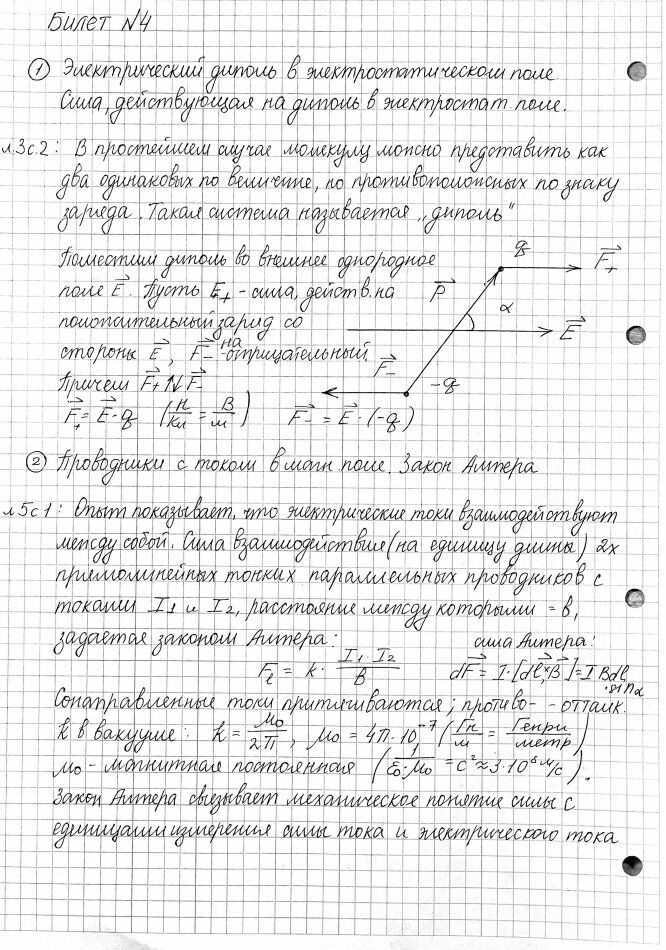 Билет №4
① Электрический диполь в электростатическом поле.
Сила, действующая на диполь в электростат. поле.
л.3с.2: В простейшем случае молекулу можно представить как
два одинаковых по величине, но противоположных по знаку
заряда. Такая система называется „диполь"
Поместим диполь во внешнее однородное
поле E⃗. Пусть F₊ - сила, действ. на
положительный заряд со
стороны E⃗, F⃗₋ - на отрицательный.
Причем F⃗₊ ↑↓ F⃗₋
F⃗₊ = E⃗·q (Н/Кл = В/м) F⃗₋ = E⃗·(-q)
q F⃗₊
P⃗ α
E⃗
F⃗₋
-q
② Проводники с током в магн. поле. Закон Ампера
л5с1: Опыт показывает, что электрические токи взаимодействуют
между собой. Сила взаимодействия (на единицу длины) 2х
прямолинейных тонких параллельных проводников с
токами I₁ и I₂, расстояние между которыми = в,
задается законом Ампера: сила Ампера:
Fₗ = k · I₁·I₂/в dF⃗ = I·[dl⃗×B⃗] = I B dl ·sin α
Сонаправленные токи притягиваются, противо- - отталк.
k в вакууме: k = μ₀/2π, μ₀ = 4π·10⁻⁷ (Гн/м = Генри/метр)
μ₀ - магнитная постоянная (1/ε₀·μ₀ = c² ≈ 3·10⁸ м/с).
Закон Ампера связывает механическое понятие силы с
единицами измерения силы тока и электрического тока